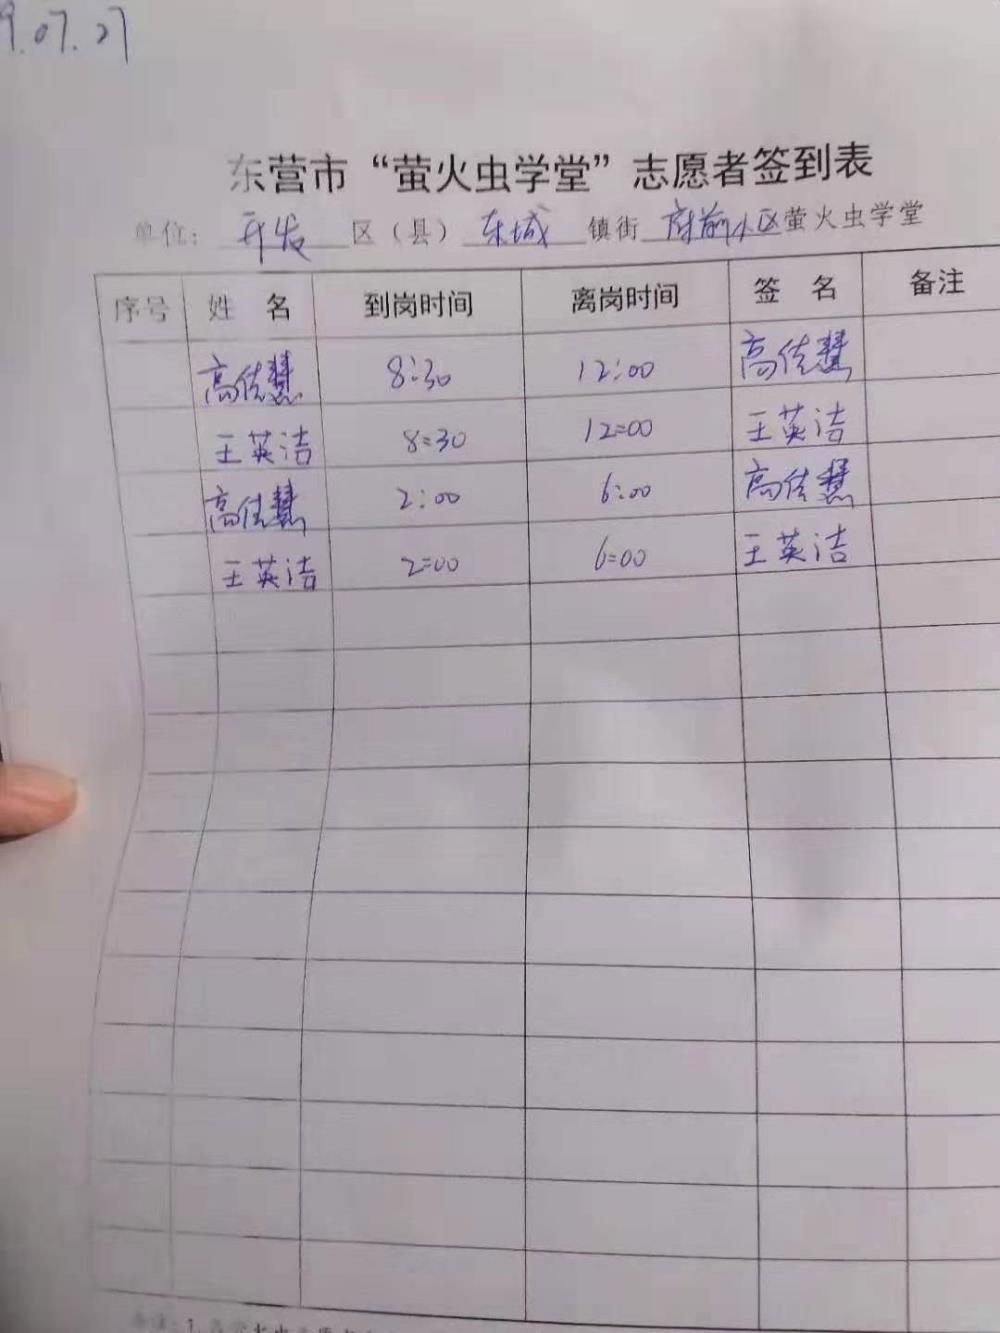 9.07.27
东营市“萤火虫学堂”志愿者签到表
单位: 开发 区（县） 东城 镇街 府前小区 萤火虫学堂
序号 姓 名 到岗时间 离岗时间 签 名 备注
高佳慧 8:30 12:00 高佳慧
王英洁 8:30 12:00 王英洁
高佳慧 2:00 6:00 高佳慧
王英洁 2:00 6:00 王英洁